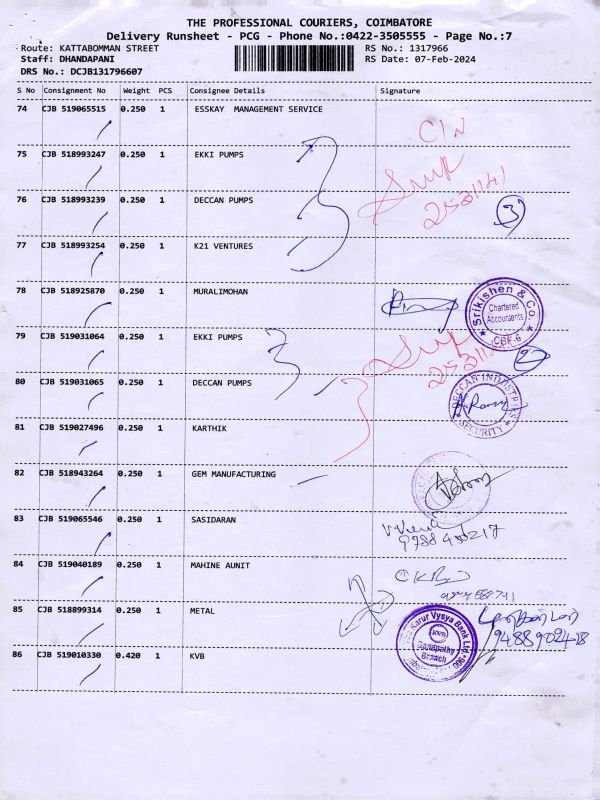 THE PROFESSIONAL COURIERS, COIMBATORE
Delivery Runsheet - PCG - Phone No.:0422-3505555 - Page No.:7
Route: KATTABOMMAN STREET RS No.: 1317966
Staff: DHANDAPANI RS Date: 07-Feb-2024
DRS No.: DCJB131796607
S No Consignment No Weight PCS Consignee Details Signature
74 CJB 519065515 0.250 1 ESSKAY MANAGEMENT SERVICE
75 CJB 518993247 0.250 1 EKKI PUMPS
76 CJB 518993239 0.250 1 DECCAN PUMPS
3
2531141
3
77 CJB 518993254 0.250 1 K21 VENTURES
78 CJB 518925870 0.250 1 MURALIMOHAN
Srikishen & Co.
Chartered
Accountants
CBE-6
79 CJB 519031064 0.250 1 EKKI PUMPS
3
2
80 CJB 519031065 0.250 1 DECCAN PUMPS
3
DECCAN INDUSTRIES
SECURITY
81 CJB 519027496 0.250 1 KARTHIK
82 CJB 518943264 0.250 1 GEM MANUFACTURING
83 CJB 519065546 0.250 1 SASIDARAN
84 CJB 519040189 0.250 1 MAHINE AUNIT
85 CJB 518899314 0.250 1 METAL
Karur Vysya Bank Ltd.
Ganapathy
Branch
86 CJB 519010330 0.420 1 KVB